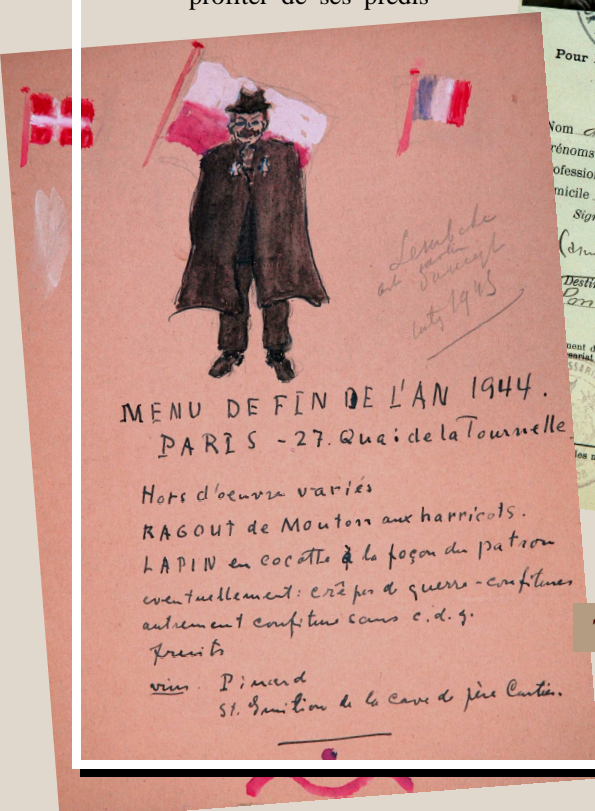 profiter de ses prédis
Pour
Nom
rénoms
ofession
micile
Sig
Desti
1945
MENU DE FIN DE L'AN 1944.
PARIS - 27. Quai de la Tournelle.
Hors d'oeuvre variés
RAGOUT de Mouton aux harricots.
LAPIN en cocotte à la façon du patron
eventuellement: crêpes d guerre - confitures
autrement confiture sans c.d.g.
fruits
vins. Pinard
St. Emition de la cave d père Cartier.